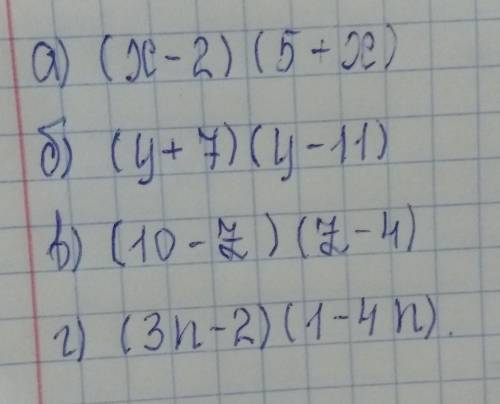 а) (x - 2) (5 + x)
б) (y + 7) (y - 11)
в) (10 - z) (z - 4)
г) (3n - 2) (1 - 4n).